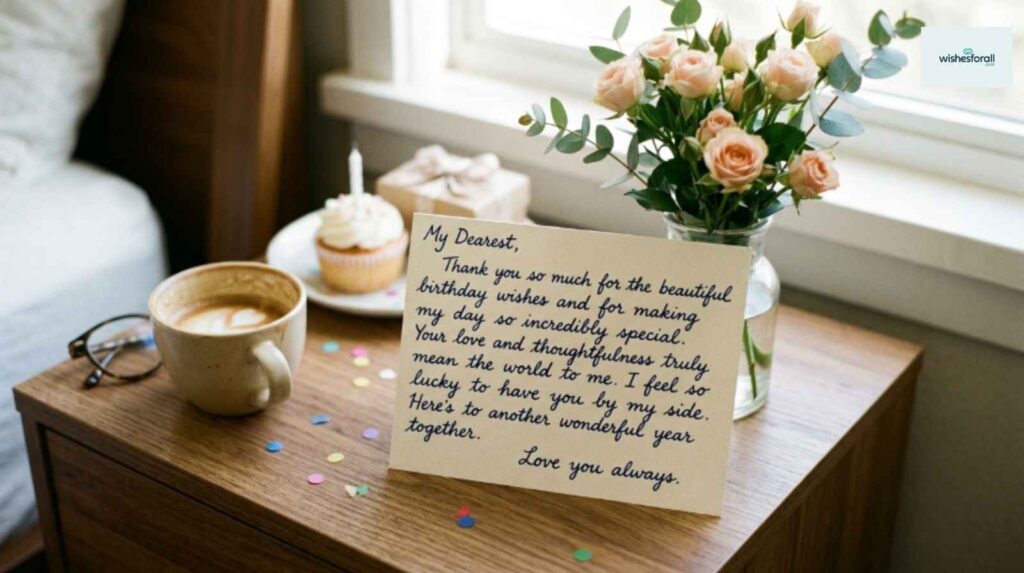 wishesforall
.com
My Dearest,
Thank you so much for the beautiful
birthday wishes and for making
my day so incredibly special.
Your love and thoughtfulness truly
mean the world to me. I feel so
lucky to have you by my side.
Here's to another wonderful year
together.
Love you always.